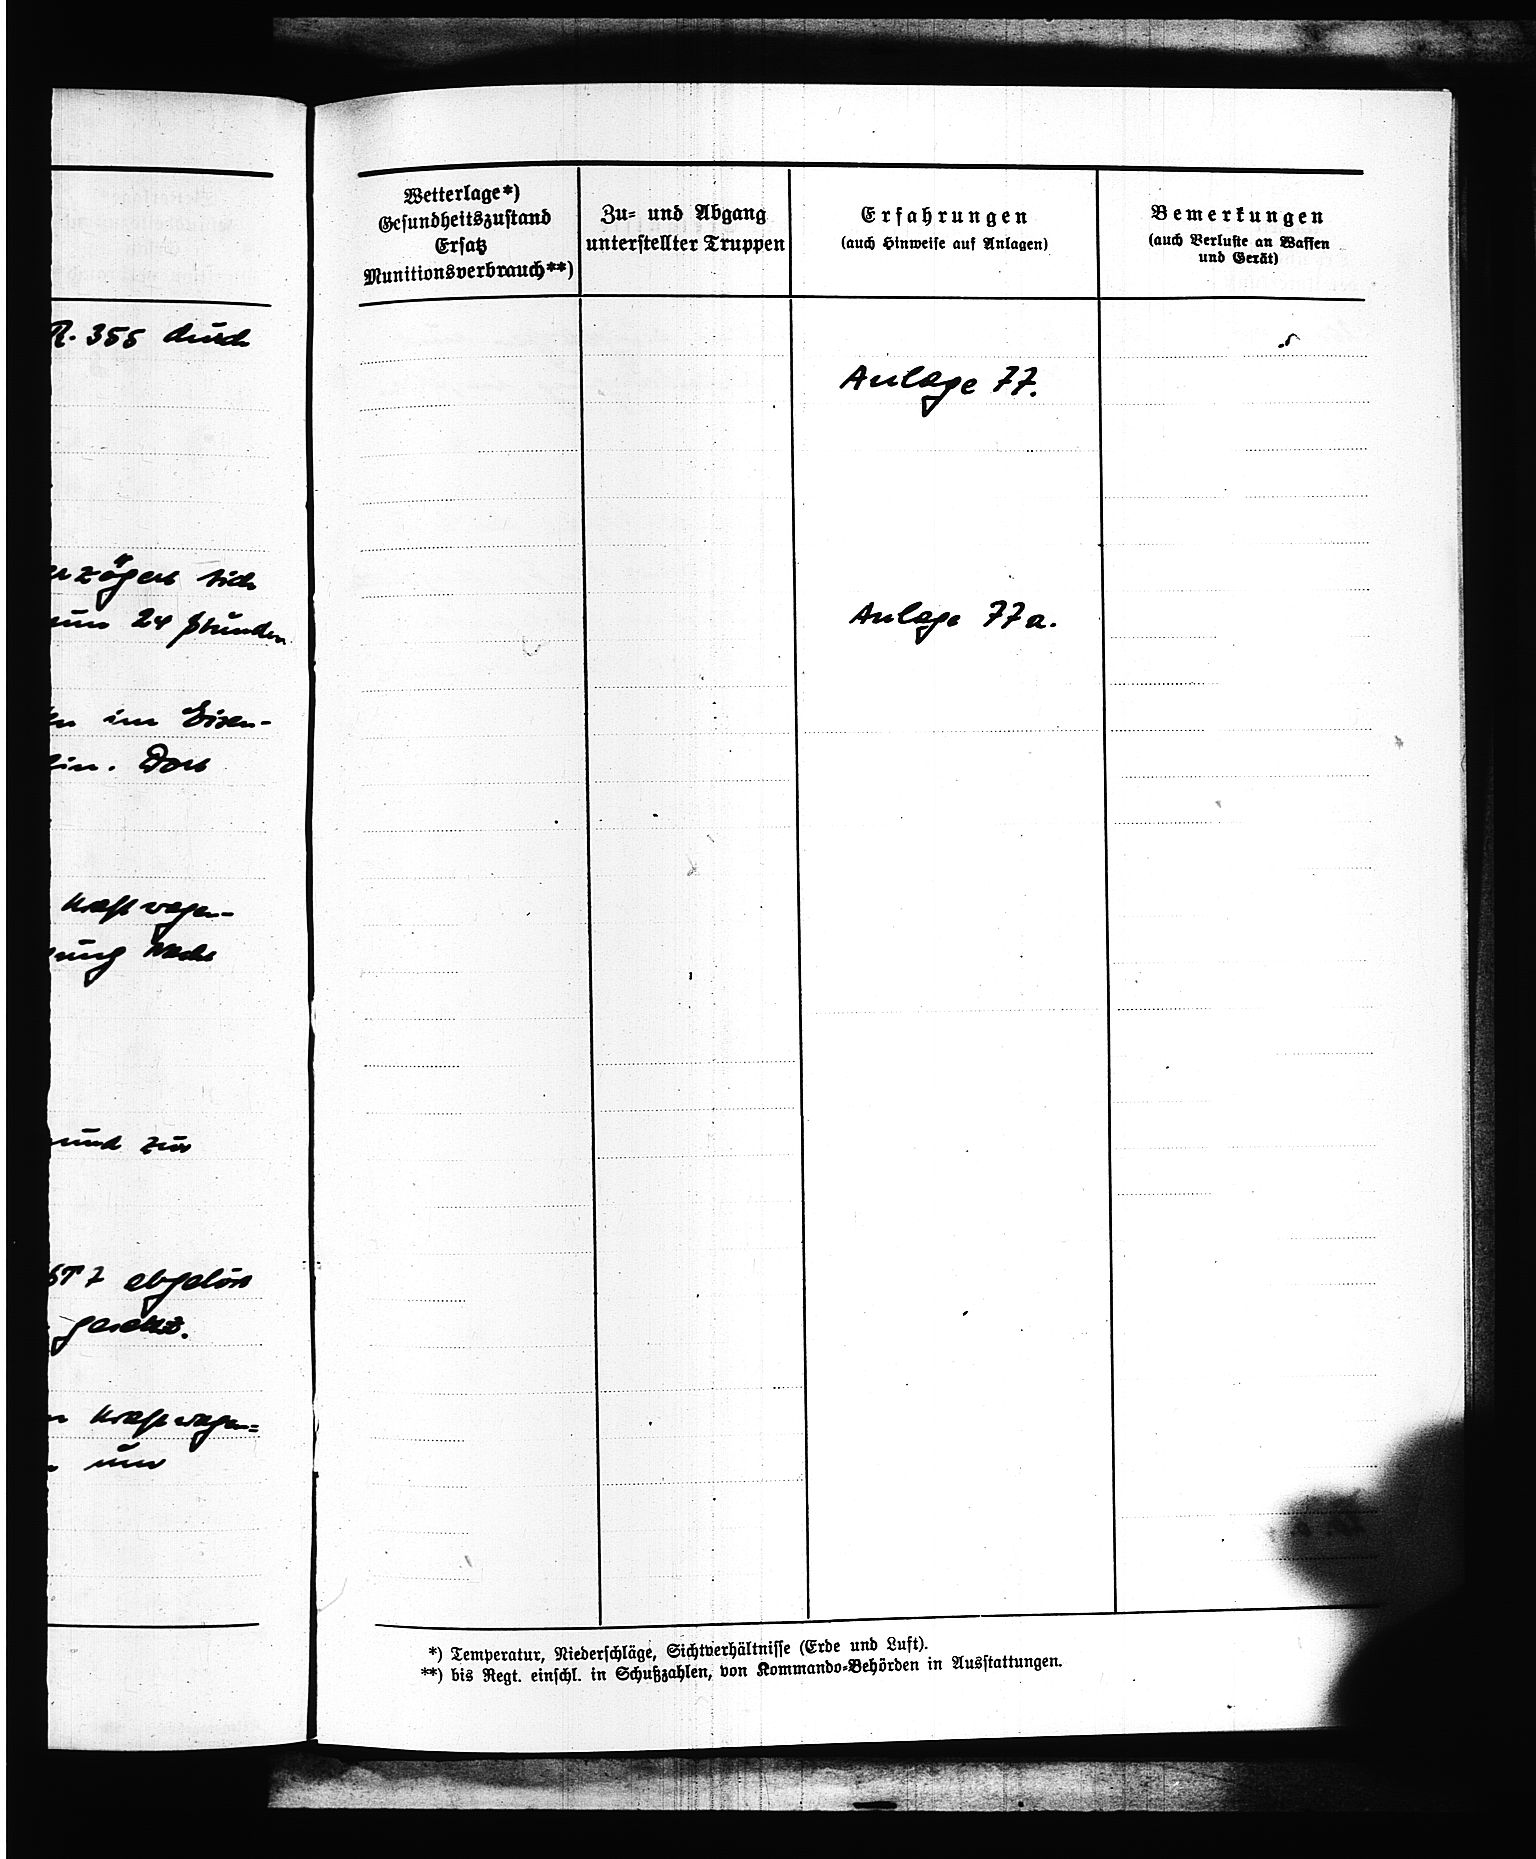 R. 355 durch
zögert sich
um 24 Stunden
im Eisen-
Dort
Kraftwagen-
und zur
abgelöst
Kraftwagen=
Wetterlage*)
Gesundheitszustand
Ersatz
Munitionsverbrauch**)
Zu- und Abgang
unterstellter Truppen
Erfahrungen
(auch Hinweise auf Anlagen)
Bemerkungen
(auch Verluste an Waffen
und Gerät)
Anlage 77.
Anlage 77a.
*) Temperatur, Niederschläge, Sichtverhältnisse (Erde und Luft).
**) bis Regt. einschl. in Schußzahlen, von Kommando-Behörden in Ausstattungen.